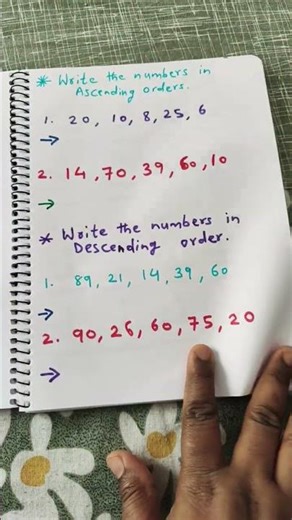 * Write the numbers in
Ascending orders.
1. 20, 10, 8, 25, 6
→
2. 14, 70, 39, 60, 10
→
* Write the numbers in
Descending order.
1. 89, 21, 14, 39, 60
→
2. 90, 26, 60, 75, 20
→